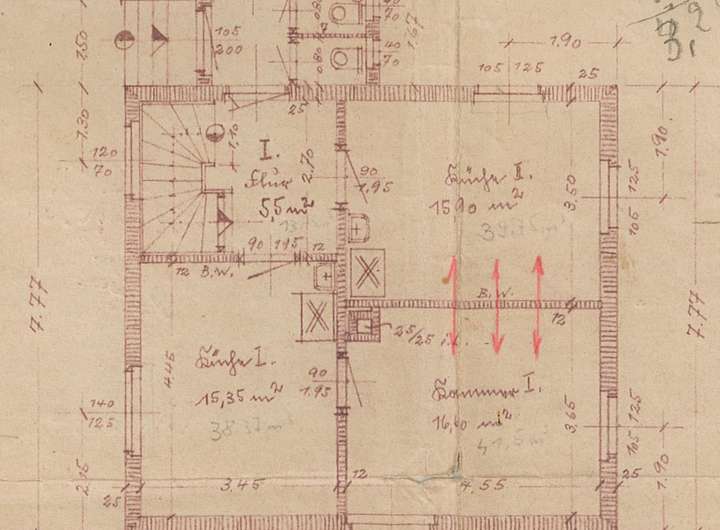 105
200
2.50
0.80
0.80
40
70
40
70
1.67
1.90
105 125
25
25
1.30
120
70
1.10
I.
Flur
5,5 m²
2.70
90
1.95
Küche II.
15.90 m²
3.50
125
105
1.90
7.77
7.77
12
B.W.
90
195
12
B.W.
12
25/25 i.L.
Küche I.
15,35 m²
4.45
90
1.95
Kammer I.
16,60 m²
3.65
140
125
2.15
105 125
1.90
25
3.45
12
4.55
25